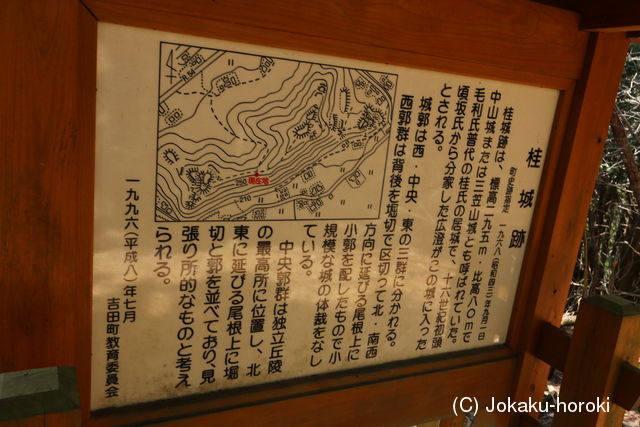 桂城跡
町史跡指定 一九六八(昭和四三)年九月一日
桂城跡は、標高二九五m、比高八〇mで
中山城または三笠山城とも呼ばれていた。
毛利氏普代の桂氏の居城で、十六世紀初頭
頃坂氏から分家した広澄がこの城に入った
とされる。
城郭は西・中央・東の三群に分かれる。
西郭群は背後を堀切で区切って北・南西
方向に延びる尾根上に
小郭を配したもので小
規模な城の体裁をなし
ている。
中央郭群は独立丘陵
の最高所に位置し、北
東に延びる尾根上に堀
切と郭を並べており、見
張り所的なものと考え
られる。
一九九六(平成八)年七月
吉田町教育委員会
現在地
250
210
(C) Jokaku-horoki